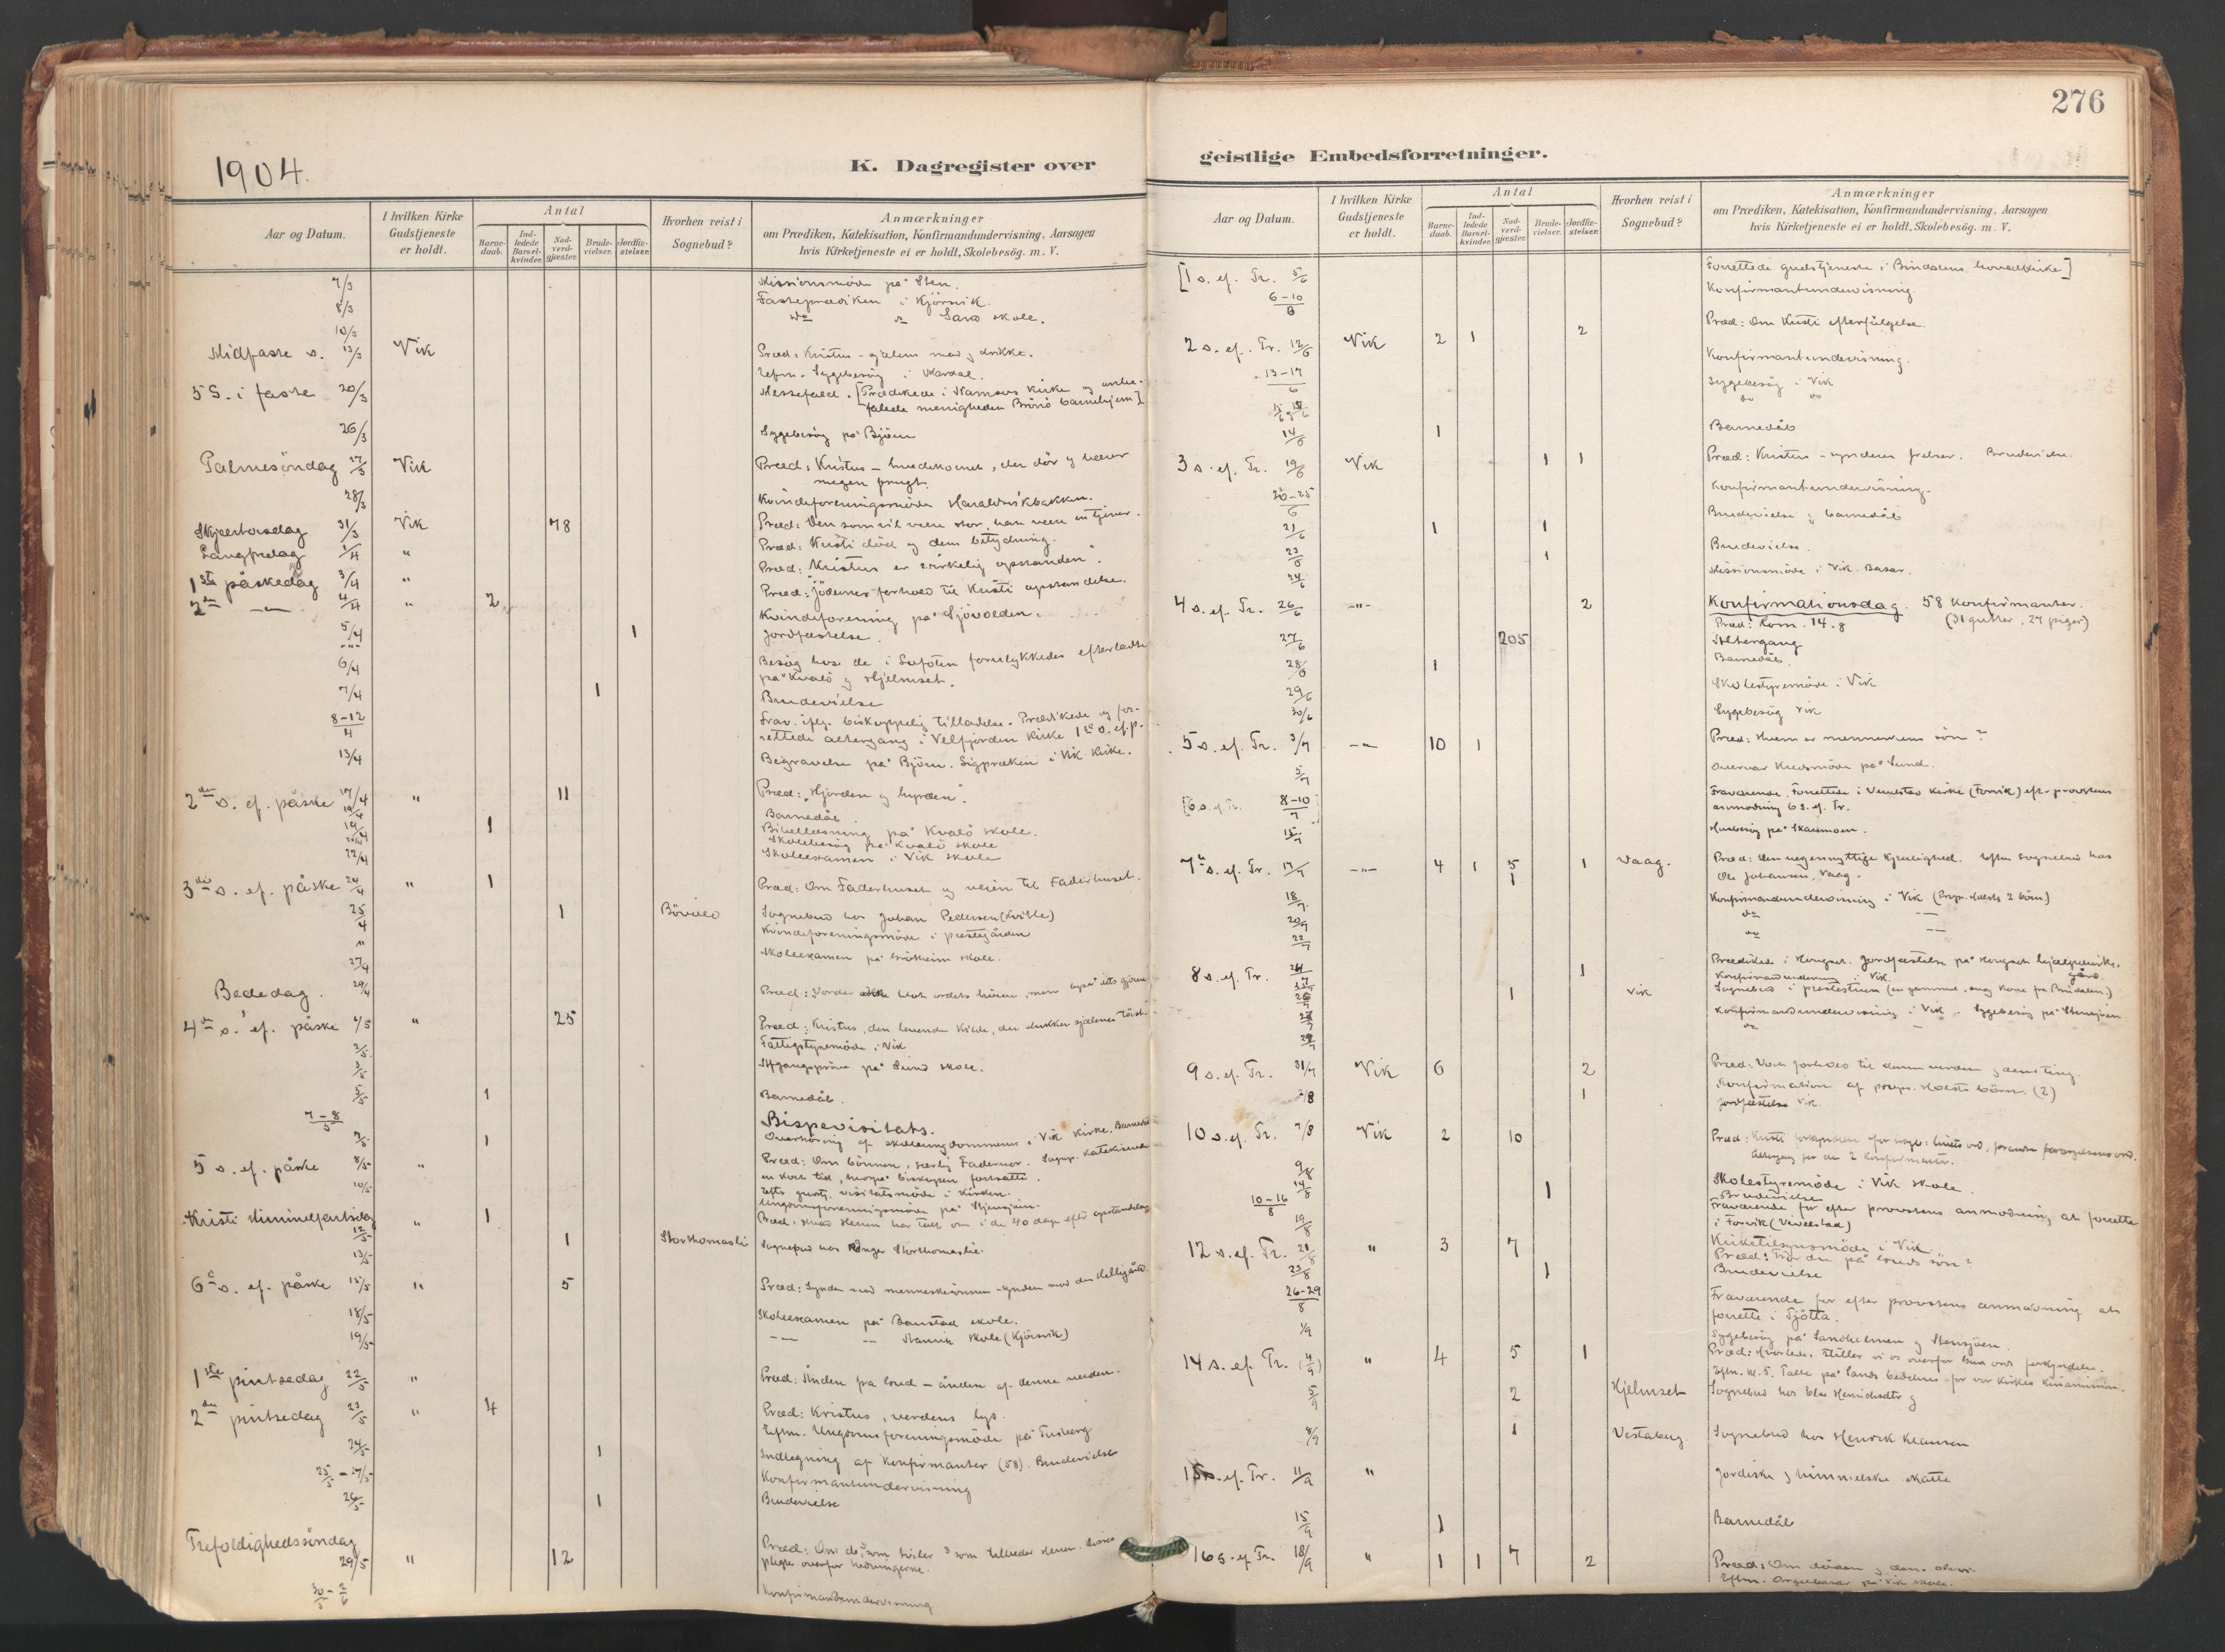 276
1904.
K. Dagregister over
geistlige Embedsforretninger.
Aar og Datum.
I hvilken Kirke Gudstjeneste er holdt.
Antal
Barne-daab.
Ind-ledede Barsel-kvinder.
Nad-verd-gjæster.
Brude-vielser.
Jordfæ-stelser.
Hvorhen reist i Sognebud?
Anmærkninger
om Prædiken, Katekisation, Konfirmandundervisning, Aarsagen
hvis Kirketjeneste ei er holdt, Skolebesög. m. V.
7/3 Missionsmöde på Sten.
8/3 Fasteprædiken i Kjörsvik.
10/3 do Sara skole.
Midfaste s. 13/3 Vik Præd: Kristus - sjælens mad og drikke.
Eftm. Sygebesög i Mardal.
5 S. i faste 20/3 Messefald. [Prædikede i Namsos kirke og anbe-
falede menigheden barnehjem]
26/3 Sygebesög på Björn
Palmesöndag 27/3 Vik Præd: Kristus - hvedekornet, der dör og bærer
megen frugt.
28/3 Kvindeforeningsmöde Haraldsvikbakken.
Skjærtorsdag 31/3 Vik 78 Præd: Den som vil være stor, han være en tjener.
Langfredag 1/4 " Præd: Kristi död og dens betydning.
1ste påskedag 3/4 " Præd: "Kristus er virkelig opstanden".
2den -"- 4/4 " 2 Præd: Jödernes forhold til Kristi opstandelse.
5/4 Kvindeforening på Sjövolden.
-"- 1 Jordfæstelse.
6/4 Besög hos de i Lofoten forulykkedes efterladte
på Kvalö og Hjelmset.
7/4 1 Brudevielse
8-12/4 Frav. iflg. biskoppelig tilladelse. Prædikede og for-
rettede altergang i Velfjorden kirke 1ste s. ef. p.
13/4 Begravelse på Björn. Ligpræken i Vik kirke.
2den s. ef. påske 17/4 " 11 Præd: "Hjorden og hyrden".
19/4 1 Barnedåb.
19/4 Bibellæsning på Kvalö skole.
20/4 Skolebesög på Kvalö skole
22/4 Skoleexamen i Vik skole
3die s. ef. påske 24/4 " 1 Præd: Om Faderhuset og veien til Faderhuset.
25/4 1 Sognebud hos Johan Pedersen
" Kvindeforeningsmöde i prestegården
27/4 Skoleexamen på skole.
Bededag. 29/4 Præd: Vorder ikke blot ordets hörere, men også dets gjörere
4de s. ef. påske 1/5 " 25 Præd: Kristus, den levende kilde, der slukker sjælenes törst.
2/5 Fattigstyremöde i Vik
3/5 Afgangspröve på Lund skole.
5/5 1 Barnedåb.
7-8/5 Bispevisitats.
7/5 1 Overhöring af skoleungdommen i Vik kirke. Barnedåb
5 s. ef. påske 8/5 " Præd: Om bönnen, særlig Fadervor. Sogep. katekiserede
en kort tid, hvorpå biskopen fortsatte.
Efter gudstj. visitatsmöde i kirken.
10/5 Ungdomsforeningsmöde på Stensjöen.
Kristi Himmelfartsdag 12/5 " 1 Præd: Hvad Herren har talt om i de 40 dage efter opstandelsen
13/5 1 Storthomasli Sognebud hos Storthomaslie.
6te s. ef. påske 15/5 " 5 Præd: Synden mod menneskesönnen - synden mod den Helligånd
18/5 Skoleexamen på Baustad skole.
19/5 -"- -"- skole (Kjörsvik)
1ste pintsedag 22/5 " Præd: Ånden fra Gud - ånden af denne verden.
2den pintsedag 23/5 " 4 Præd: Kristus, verdens lys.
Eftm. Ungdomsforeningsmöde på
24/5 1 Indlegning af konfirmanter (58). Brudevielse
25/5 - 27/5 Konfirmantundervisning
26/5 1 Brudevielse
Trefoldighedssöndag 29/5 " 12 Præd: Om de som tviler som tilbeder Herren. Vores
pligter overfor hedningerne.
30/5 - 2/6 Konfirmantundervisning
Aar og Datum.
I hvilken Kirke Gudstjeneste er holdt.
Antal
Barne-daab.
Ind-ledede Barsel-kvinder.
Nad-verd-gjæster.
Brude-vielser.
Jordfæ-stelser.
Hvorhen reist i Sognebud?
Anmærkninger
om Prædiken, Katekisation, Konfirmandundervisning, Aarsagen
hvis Kirketjeneste ei er holdt, Skolebesög. m. V.
[1 s. ef. Tr. 5/6 Forrettede gudstjeneste i Bindalens hovedkirke]
6-10/6 Konfirmantundervisning.
2 s. ef. Tr. 12/6 Vik 2 1 2 Præd: Om Kristi efterfölgelse.
13-17/6 Konfirmantundervisning.
Sygebesög i Vik
do do
14/6 1 Barnedåb
3 s. ef. Tr. 19/6 Vik 1 1 Præd: Kristus - synderes frelser. Brudevielse.
20-25/6 Konfirmantundervisning.
21/6 1 1 Brudevielse og barnedåb
23/6 1 Brudevielse.
24/6 Missionsmöde i Vik. Basar.
4 s. ef. Tr. 26/6 -"- 2 Konfirmationsdag. 58 konfirmanter.
Præd: Rom. 14.8 (31 gutter, 27 piger)
27/6 205 Altergang
28/6 1 Barnedåb.
29/6 Skolestyremöde i Vik
30/6 Sygebesög Vik
5 s. ef. Tr. 3/7 -"- 10 1 Præd: Hvem er menneskens sön?
5/7 Overvar Kredsmöde på Lund.
[6 s. ef. Tr. 8-10/7] Fraværende. Forrettede i Vevelstad kirke (Forvik) efter provstens
anmodning 6 s. ef. Tr.
15/7 Husbesög på Skarsmoen.
7de s. ef. Tr. 17/7 -"- 4 1 5 1 1 Vaag. Præd: Den uegennyttige kjærlighed. Eftm sognebud hos
Ole Johansen, Vaag.
18/7 Konfirmandundervisning i Vik (Prop. Holsts 2 börn)
20/7 do -"-
22/7 do -"-
8 s. ef. Tr. 24/7 1 Prædikede i Horgset. Jordfæstelse på Horgset hjælpekirke-
gård.
Konfirmandundervisning i Vik
1 Vik Sognebud i (en gammel, svag kone fra Bindalen.)
Konfirmandundervisning i Vik. Sygebesög på Stensjöen
do -"-
9 s. ef. Tr. 31/7 Vik 6 2 Præd: Vort forhold til denne verden og dens ting.
Konfirmation af prop. Holsts börn. (2)
2/8 1 Jordfæstelse Vik.
10 s. ef. Tr. 7/8 Vik 2 10 Præd: Kristi forkyndelse
Altergang for de 2 konfirmanter.
9/8 Skolestyremöde i Vik skole.
14/8 1 Brudevielse
10-16/8 Fraværende for efter provstens anmodning at forrette
i Forvik (Vevelstad)
19/8 Kirketilsynsmöde i Vik.
12 s. ef. Tr. 21/8 " 3 7 Præd: Tror du på Guds sön?
23/8 1 Brudevielse
26-29/8 Fraværende for efter provstens anmodning at
forrette i Tjötta.
1/9 Sygebesög på Sandholmen og Stensjöen.
14 s. ef. Tr. (4/9) " 4 5 1 Præd: Hvorledes stiller vi os overfor Guds ords forkyndelse.
Eftm. kl. 5. Talte på Sands bedehus for vor kirkes kinamission.
5/9 2 Hjelmset Sognebud hos Else Henriksdtr og
8/9 1 Vestaberg. Sognebud hos Henrik Klausen
15 s. ef. Tr. 11/9 " Jordiske og himmelske skatte
15/9 1 Barnedåb
16 s. ef. Tr. 18/9 " 1 1 7 2 Præd: Om döden og dens
Eftm. Orgelbasar på Vik skole.